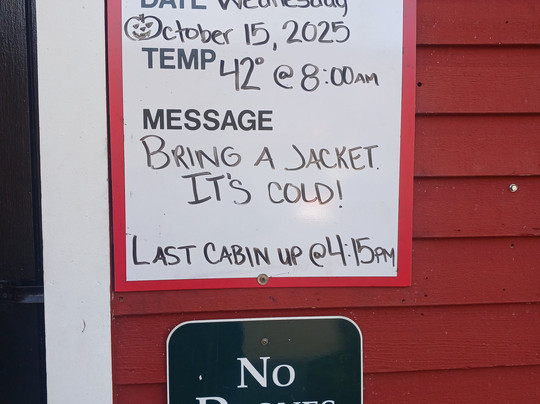 DATE Wednesday
October 15, 2025
TEMP 42° @ 8:00AM
MESSAGE
BRING A JACKET.
IT'S COLD!
LAST CABIN UP @ 4:15PM
No
DRONES